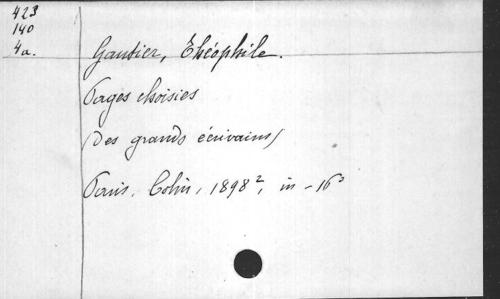 423
140
4a.
Gautier, Théophile.
Pages choisies
(des grands écrivains)
Paris, Colin, 1898², in-16°